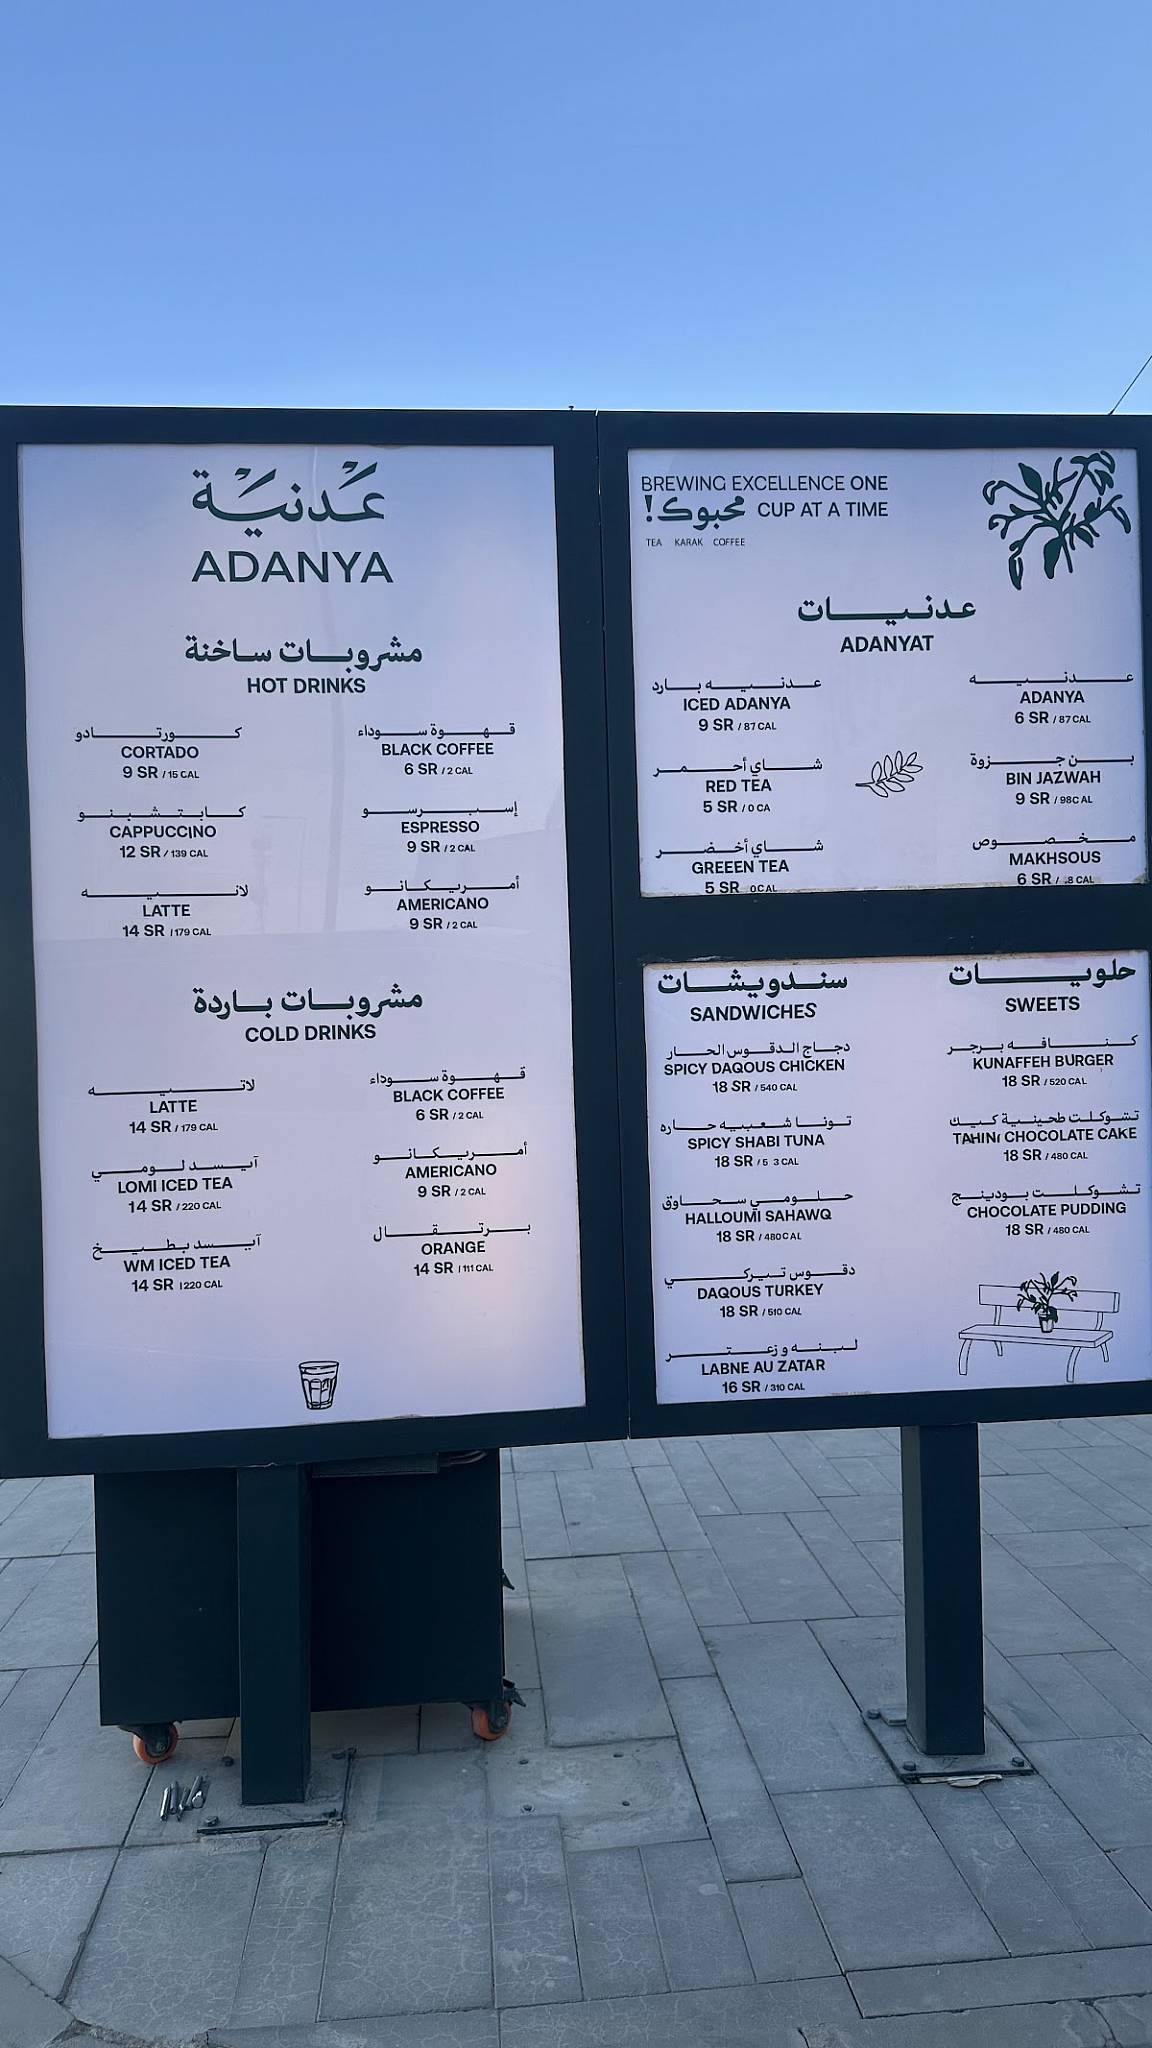 عدنية
ADANYA
مشروبات ساخنة
HOT DRINKS
كورتادو
CORTADO
9 SR / 15 CAL
قهوة سوداء
BLACK COFFEE
6 SR / 2 CAL
كابتشينو
CAPPUCCINO
12 SR / 139 CAL
إسبرسو
ESPRESSO
9 SR / 2 CAL
لاتيه
LATTE
14 SR / 179 CAL
أمريكانو
AMERICANO
9 SR / 2 CAL
مشروبات باردة
COLD DRINKS
لاتيه
LATTE
14 SR / 179 CAL
قهوة سوداء
BLACK COFFEE
6 SR / 2 CAL
آيسد لومي
LOMI ICED TEA
14 SR / 220 CAL
أمريكانو
AMERICANO
9 SR / 2 CAL
آيسد بطيخ
WM ICED TEA
14 SR / 220 CAL
برتقال
ORANGE
14 SR / 111 CAL
BREWING EXCELLENCE ONE
محبوك! CUP AT A TIME
TEA KARAK COFFEE
عدنيات
ADANYAT
عدنيه بارد
ICED ADANYA
9 SR / 87 CAL
عدنيه
ADANYA
6 SR / 87 CAL
شاي أحمر
RED TEA
5 SR / 0 CA
بن جزوة
BIN JAZWAH
9 SR / 98C AL
شاي أخضر
GREEEN TEA
5 SR 0CAL
مخصوص
MAKHSOUS
6 SR / .8 CAL
سندويشات
SANDWICHES
دجاج الدقوس الحار
SPICY DAQOUS CHICKEN
18 SR / 540 CAL
تونا شعبيه حاره
SPICY SHABI TUNA
18 SR / 5 3 CAL
حلومي سحاوق
HALLOUMI SAHAWQ
18 SR / 480C AL
دقوس تيركي
DAQOUS TURKEY
18 SR / 510 CAL
لبنه و زعتر
LABNE AU ZATAR
16 SR / 310 CAL
حلويات
SWEETS
كنافه برجر
KUNAFFEH BURGER
18 SR / 520 CAL
تشوكلت طحينية كيك
TAHINI CHOCOLATE CAKE
18 SR / 480 CAL
تشوكلت بودينج
CHOCOLATE PUDDING
18 SR / 480 CAL